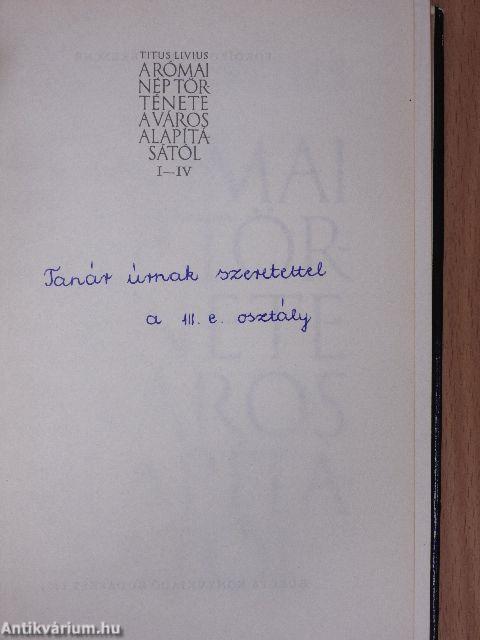 TITUS LIVIUS
A RÓMAI
NÉP TÖR
TÉNETE
A VÁROS
ALAPÍTÁ
SÁTÓL
I—IV
Tanár úrnak szeretettel
a III. e. osztály
Antikvárium.hu